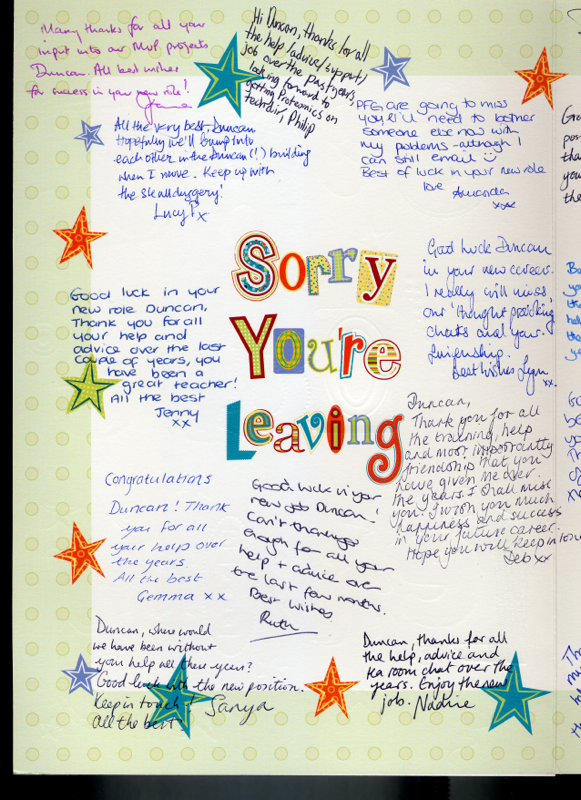 Many thanks for all your
input into our MVP projects
Duncan. All best wishes
for success in your new role!
Hi Duncan, thanks for all
the help/advice/support/
job over the past years,
looking forward to
getting Proteomics on
techdir, Philip
PFG are going to miss
you, I'll need to bother
someone else now with
my problems - although I
can still email ☺
Best of luck in your new role
love Amanda
xxx
All the very best, Duncan
Hopefully we'll bump into
each other, in the Duncan (!) building
when I move. Keep up with
the skullduggery!
Lucy P x
Good luck Duncan
in your new career.
I really will miss
our 'thought provoking'
chats and your
friendship.
Best Wishes Lynn
xx
Sorry
You're
Leaving
Good luck in your
new role Duncan,
Thank you for all
your help and
advice over the last
couple of years, you
have been a
great teacher!
All the best
Jenny
xx
Duncan,
Thank you for all
the training, help
and most importantly
friendship that you
have given me over
the years. I shall miss
you. I wish you much
happiness and success
in your future career.
Hope you will keep in touch
Deb xx
Congratulations
Duncan! Thank
you for all
your help over
the years.
All the best
Gemma xx
Good luck in your
new job Duncan!
Can't thank you
enough for all your
help + advice over
the last few months.
Best Wishes
Ruth
Duncan, where would
we have been without
your help all these years?
Good luck with the new position.
Keep in touch + Sanya
All the best
Duncan, thanks for all
the help, advice and
tea room chat over the
years. Enjoy the new
job. Nadine